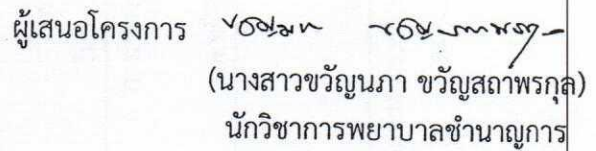 ผู้เสนอโครงการ
(นางสาวขวัญนภา ขวัญสถาพรกุล)
นักวิชาการพยาบาลชำนาญการ